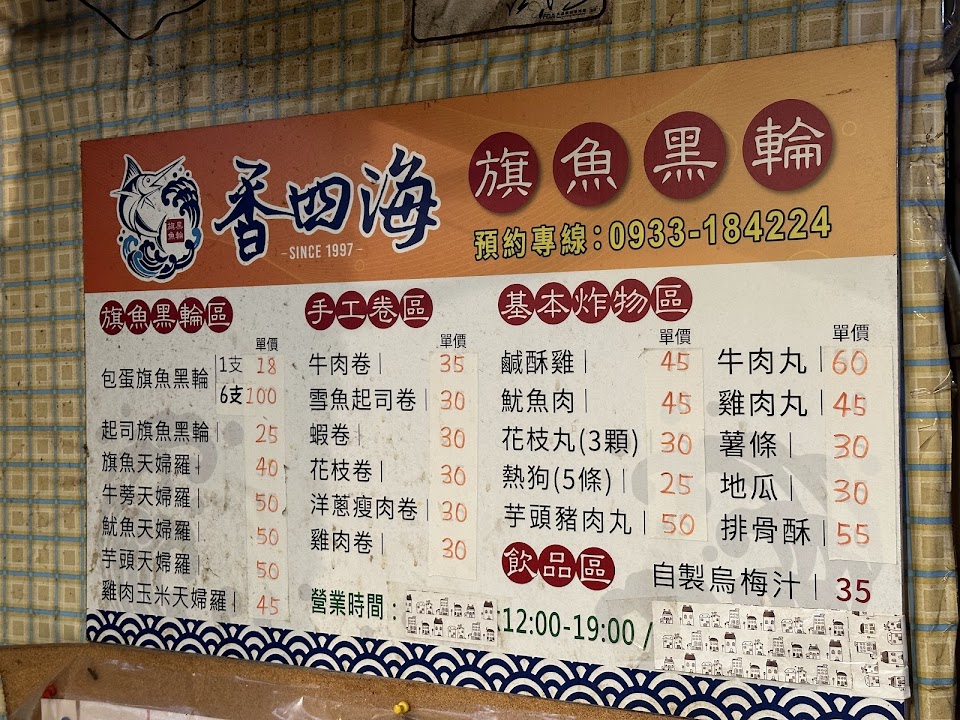 香四海
-SINCE 1997-
旗魚黑輪
預約專線：0933-184224
旗魚黑輪區
單價
包蛋旗魚黑輪 1支 18
6支 100
起司旗魚黑輪 25
旗魚天婦羅 40
牛蒡天婦羅 50
魷魚天婦羅 50
芋頭天婦羅 50
雞肉玉米天婦羅 45
手工卷區
單價
牛肉卷 35
雪魚起司卷 30
蝦卷 30
花枝卷 30
洋蔥瘦肉卷 30
雞肉卷 30
營業時間：12:00-19:00 /
基本炸物區
單價
鹹酥雞 45
魷魚肉 45
花枝丸(3顆) 30
熱狗(5條) 25
芋頭豬肉丸 50
單價
牛肉丸 60
雞肉丸 45
薯條 30
地瓜 30
排骨酥 55
飲品區
自製烏梅汁 35